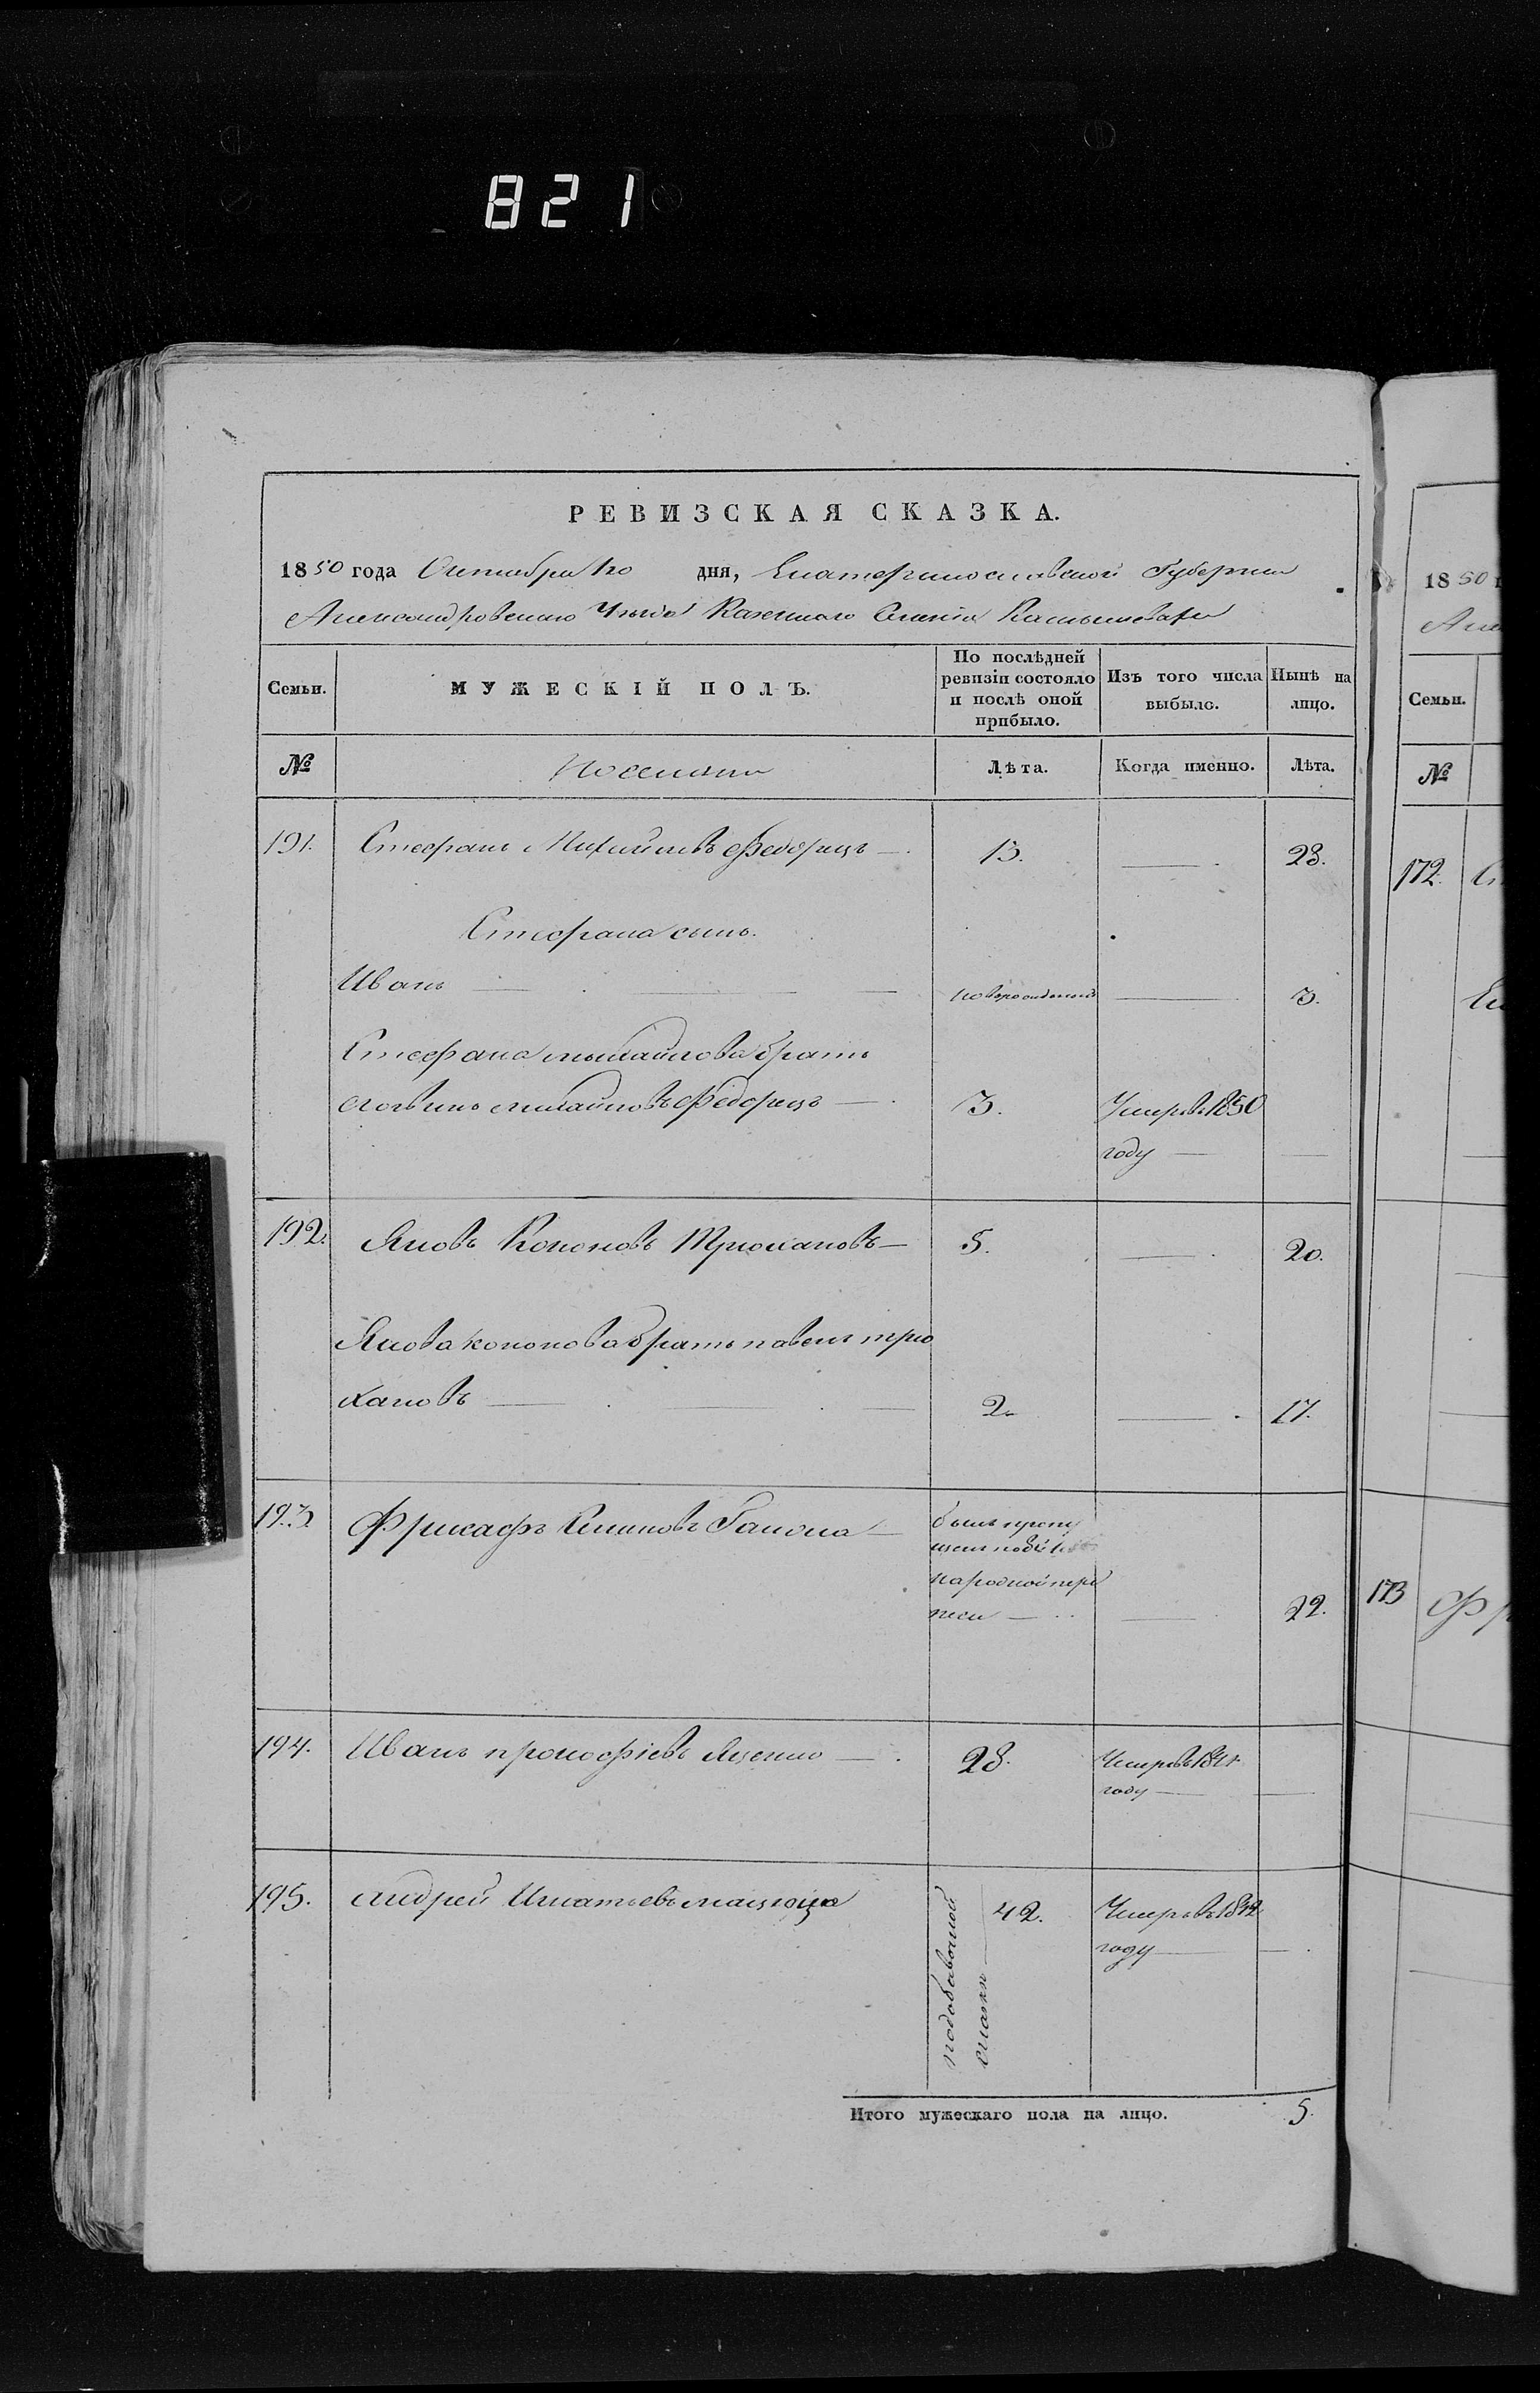 821
РЕВИЗСКАЯ СКАЗКА.
1850 года Октября 10 дня, Екатеринославской Губернии
Александровскаго Уѣзда Казеннаго Селенія
Семьи. МУЖЕСКІЙ ПОЛЪ. По послѣдней ревизіи состояло и послѣ оной прибыло. Изъ того числа выбыло. Нынѣ на лицо.
№ Поселяни Лѣта. Когда именно. Лѣта.
191. Стефанъ Михайловъ Федорецъ — 13. — 28.
Стефана сынъ.
Иванъ — новорожденъ — 3.
Стефана михайлова братъ
логвинъ михайловъ Федорецъ — 3. Умеръ въ 1850
году —
192. Яковъ Кононовъ Трюхановъ — 5. — 20.
Якова кононова братъ павелъ трю
хановъ — 2. — 17.
193. Фрисафъ Ганоха — былъ пропу
щенъ
народной пере
писи — 22.
194. Иванъ прокофіевъ Яценко — 28. Умеръ въ
году —
195. андрей Игнатьевъ 42. Умеръ въ 1842
году —
подобавочной
сказки
Итого мужескаго пола на лицо. 5.
1850
Семьи.
№
172.
173